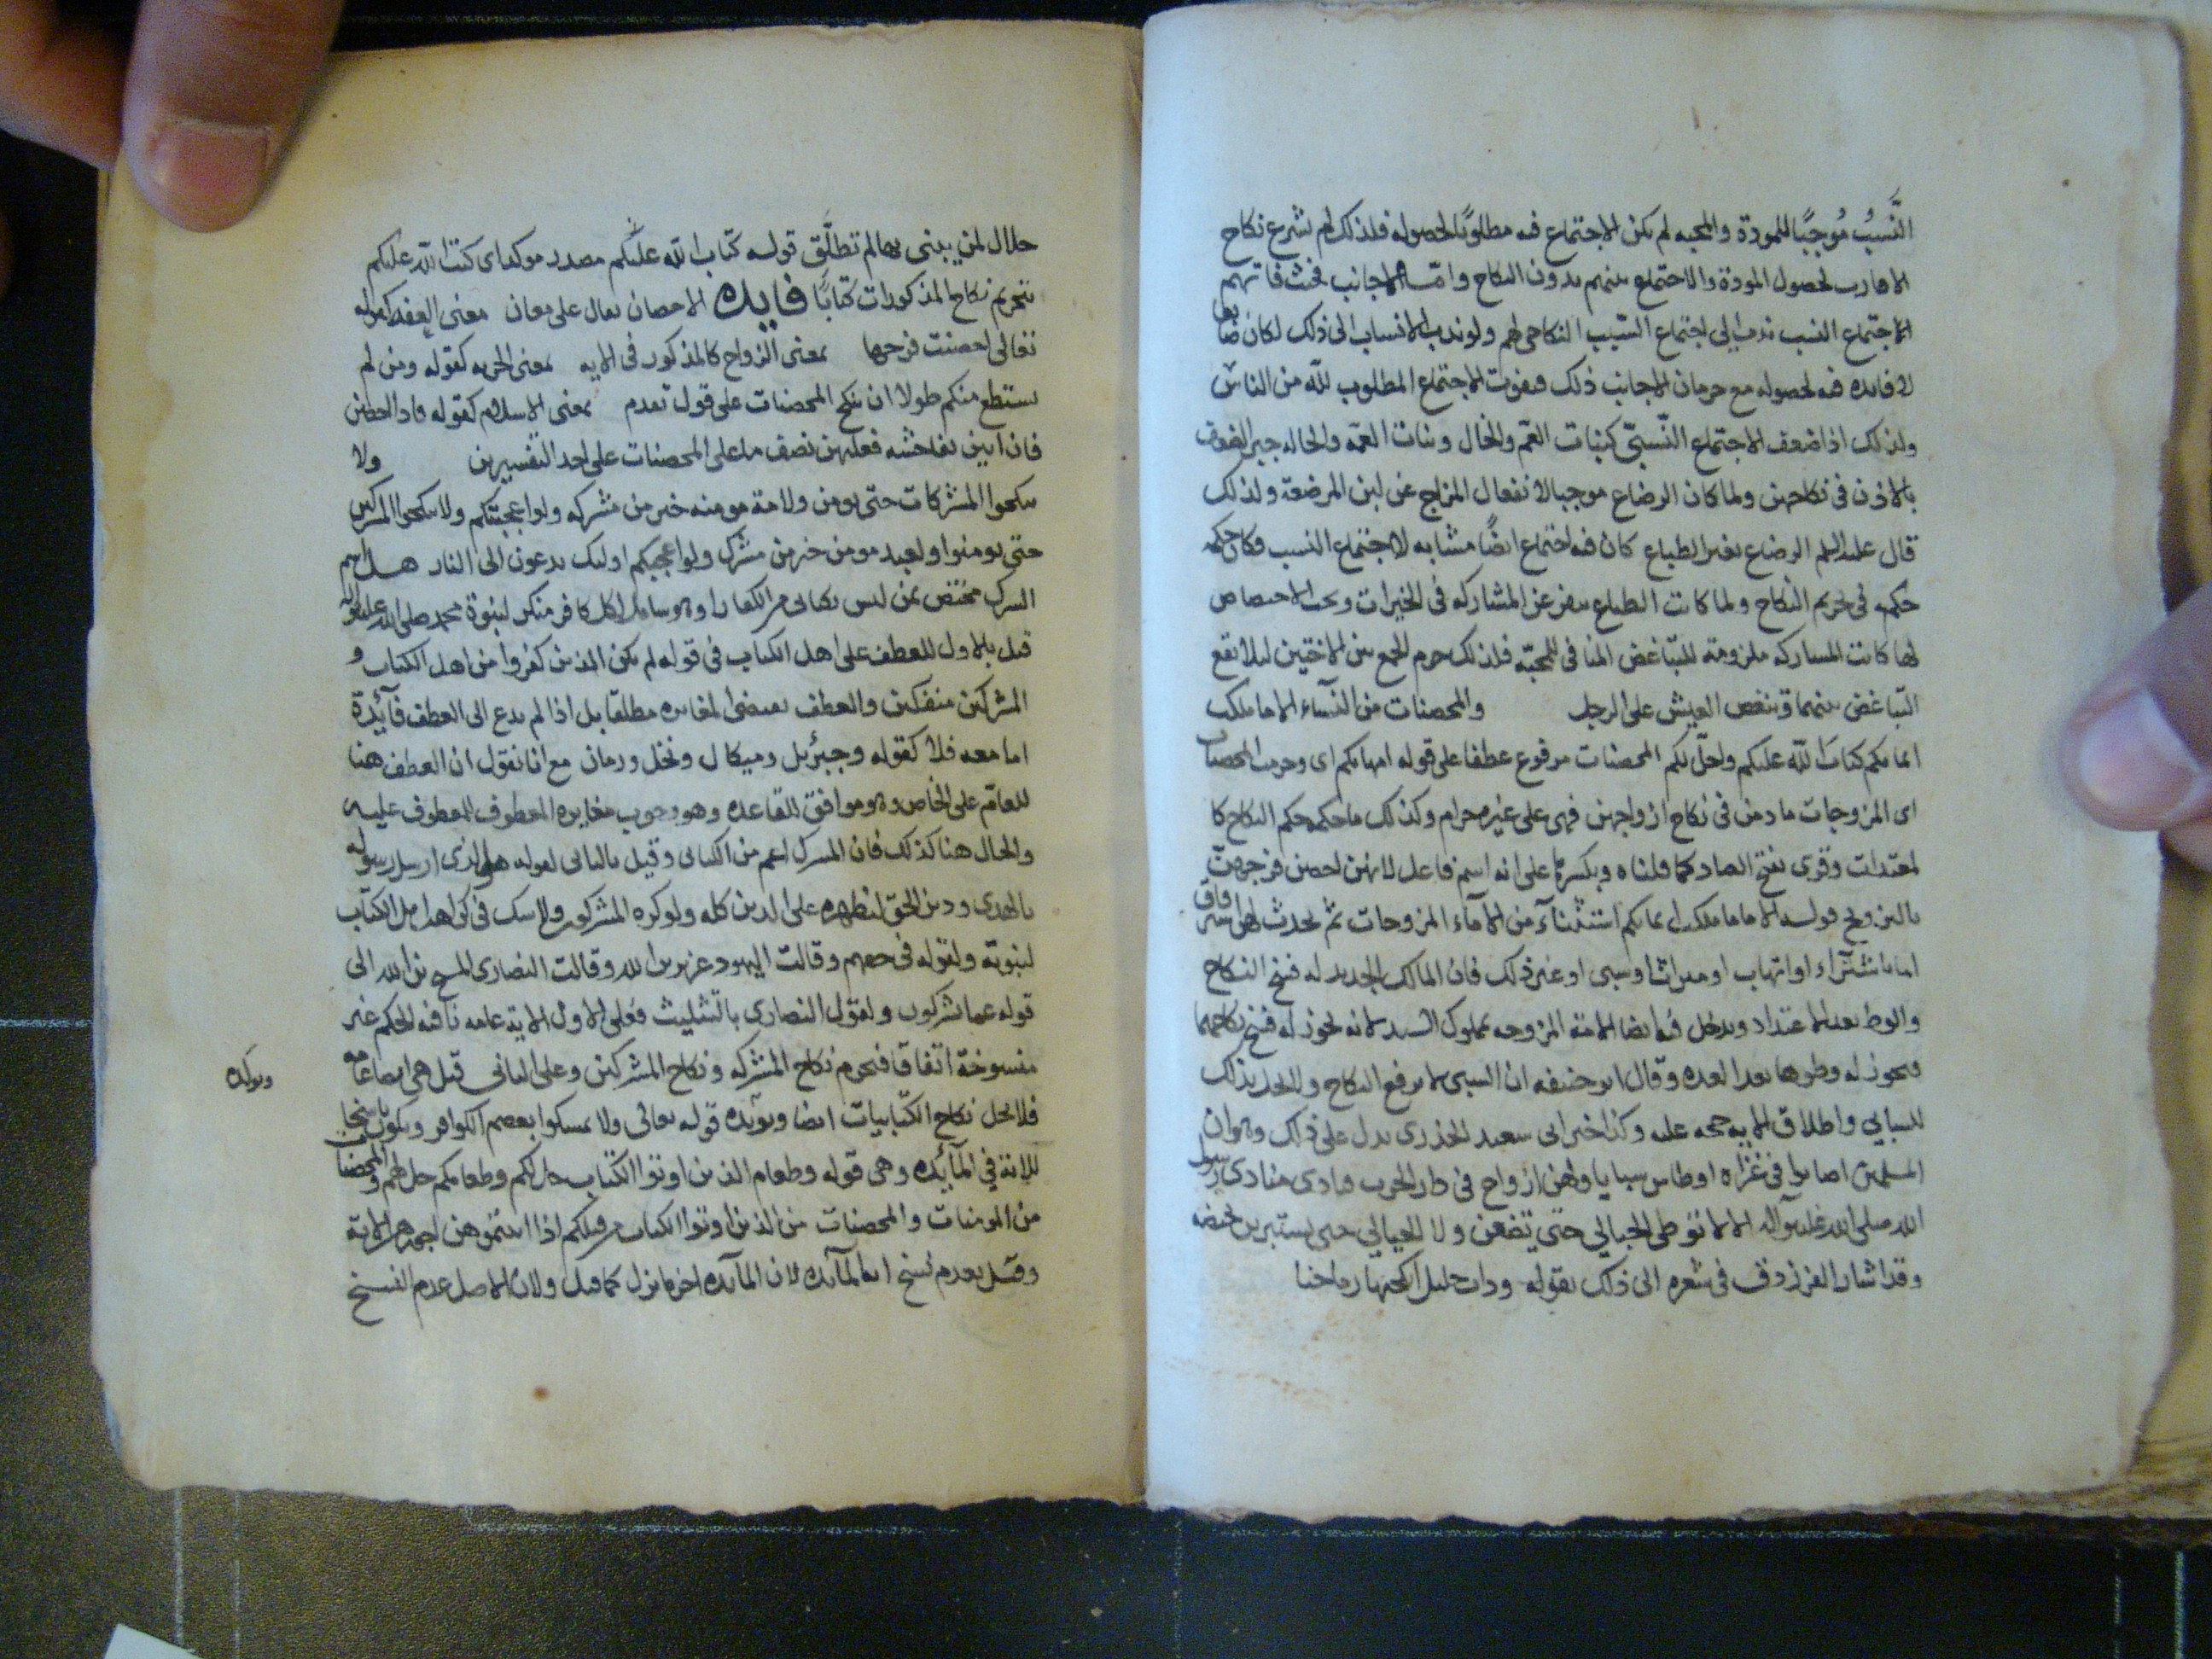 النَّسَبُ مُوجبًا للمودة والمحبه لم يكن الاجتماع فيه مطلوبًا لحصوله فلذلك لم يشرع نكاح
الاقارب لحصول المودة والاجتماع بينهم بدون النكاح وامّا الاجانب فحيث فاتهم
الاجتماع النسبي ندب الى اجتماع السببي النكاحي لهم ولو ندب الانساب الى ذلك لكان ضايعا
لا فايده فيه لحصوله مع حرمان الاجانب ذلك فيفوت الاجتماع المطلوب لله من الناس
ولذلك اذا ضعف الاجتماع النّسبيّ كبنات العمّ والخال وبنات العمه والخاله جبر الضعف
بالاذن في نكاحهن ولما كان الرضاع موجبا لانفعال المزاج عن لبن المرضعة ولذلك
قال عليه السلم الرضاع يغير الطباع كان فيه اجتماع ايضًا مشابه لاجتماع النسب فكان حكمه
حكمه في تحريم النكاح ولما كانت الطباع تنفر عن المشاركه في الخيرات وتحب الاختصاص
لها كانت المشاركه ملزومة للتباغض المنافي للمحبّه فلذلك حرم الجمع بين الاختين ليلا يقع
التباغض بينهما فينغص العيش على الرجل والمحصنات من النساء الا ما ملكت
ايمانكم كتابَ الله عليكم واحلّ لكم المحصنات مرفوع عطفا على قوله امهاتكم اى وحرمت المحصنات
اى المزوجات ما دمن في نكاح ازواجهن فهى على غيرهم حرام وكذلك ما حكمه حكم النكاح كا
لمعتدات وقرى بفتح الصاد كما قلناه وبكسرها على انه اسم فاعل لانهن احصن فروجهنّ
بالتزويج قوله الا ما ملكت ايمانكم استثناء من الاماء المزوجات ثم يحدث لها
اما باشتراء او اتهاب او ميراث او سبى او غير ذلك فان المالك الجديد له فسخ النكاح
والوطؤ بعد الاعتداد ويدخل فيه ايضا الامة المزوجه بمملوك السيد لانه يجوز له فسخ نكاحهما
فيجوز له وطوها بعد العده وقال ابو حنيفه ان السبى لا يرفع النكاح ولا تحل بذلك
للسابي واطلاق الايه حجه عليه وكذا خبر ابى سعيد الخدرى يدل على ذلك وهو ان
المسلمين اصابوا في غزاه اوطاس سبايا ولهن ازواج في دار الحرب فنادى منادى رسول
الله صلى الله عليه وآله الا لا توطى الحبالى حتى تضعن ولا الحيالى حتى يستبرين بحيضه
وقد اشار الفرزدق في شعره الى ذلك بقوله وذات حليل انكحتها رماحنا
حلال لمن يبنى بها لم تطلَّق قوله كتابَ الله عليكم مصدر موكد اى كتب الله عليكم
تحريم نكاح المذكورات كتابًا فايده الاحصان يقال على معان معنى العفه كقوله
تعالى احصنت فرجها بمعنى الزواج كالمذكور في الايه بمعنى الحريه كقوله ومن لم
يستطع منكم طولا ان ينكح المحصنات على قول تقدم بمعنى الاسلام كقوله فاذا احصن
فان اتين بفاحشه فعليهن نصف ما على المحصنات على احد التفسيرين ولا
تنكحوا المشركات حتى يومن ولامة مومنه خير من مشركه ولو اعجبتكم ولا تنكحوا المشركين
حتى يومنوا ولعبد مومن خير من مشرك ولو اعجبكم اوليك يدعون الى النار هل اسم
الشرك مختص بمن ليس بكتابى من الكفار او هو شامل لكل كافر منكر لنبوة محمد صلى الله عليه وآله
قيل بالاول للعطف على اهل الكتاب في قوله لم يكن الذين كفروا من اهل الكتاب و
المشركين منفكين والعطف يقتضى المغايره مطلقا بل اذا لم يدع الى العطف فآئدة
اما معه فلا كقوله وجبرئيل وميكال ونخل ورمان مع انا نقول ان العطف هنا
للعامّ على الخاص وهو موافق للقاعده وهو وجوب مغايره المعطوف للمعطوف عليه
والحال هنا كذلك فان المشرك اعم من الكتابى وقيل بالثانى لقوله هو الذى ارسل رسوله
بالهدى ودين الحق ليظهره على الدين كله ولو كره المشركون ولا شك في كراهة اهل الكتاب
لنبوته ولقوله في حقهم وقالت اليهود عزير ابن الله وقالت النصارى المسيح بن الله الى
قوله عما يشركون ولقول النصارى بالتثليث فعلى الاول الاية عامه باقيه الحكم غير
منسوخة اتفاقا فيحرم نكاح المشركه ونكاح المشركين وعلى الثانى قيل هي ايضا عامه
فلا يحل نكاح الكتابيات ايضا ويوئده قوله تعالى ولا تمسكوا بعصم الكوافر ويكون ناسخا
للاية في المآئده وهى قوله وطعام الذين اوتوا الكتاب حل لكم وطعامكم حل لهم والمحصنات
من المومنات والمحصنات من الذين اوتوا الكتاب من قبلكم اذا اتيتموهن اجورهن الاية
وقيل بعدم نسخ اية المآئده لان المآئده اخر ما نزل كما قيل ولان الاصل عدم النسخ
ويوكده